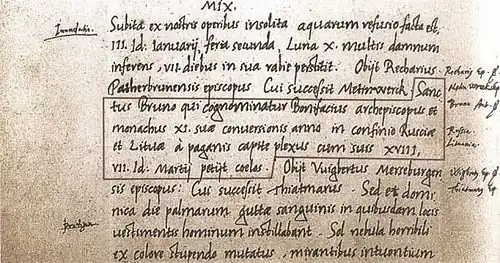 MIX.
Subita ex nostris operibus insolita aquarum refusio facta est,
III. Id: Ianuarij, feria secunda, Luna X. multis damnum
inferens, VII. diebus in sua rabie perstitit. Obijt Recharius
Patherbrunensis episcopus. Cui successit Metinwerck. Sanc
tus Bruno qui cognominatur Bonifacius archepiscopus et
monachus XI. suæ conversionis anno in confinio Rusciæ
et Lituæ à paganis capite plexus cum suis XVIII,
VII. Id: Martij petijt coelos. Obijt Vuigbertus Merseburgen
sis episcopus: Cui successit Thiatmarus. Sed et domi
nica die palmarum guttæ sanguinis in quibusdam locis
vestimentis hominum instillabant. Sol nebula horribili
ex colore stupendo mutatus, mirantibus intuentium
Inundatio.
Recharij Ep.
Russia
Lituania